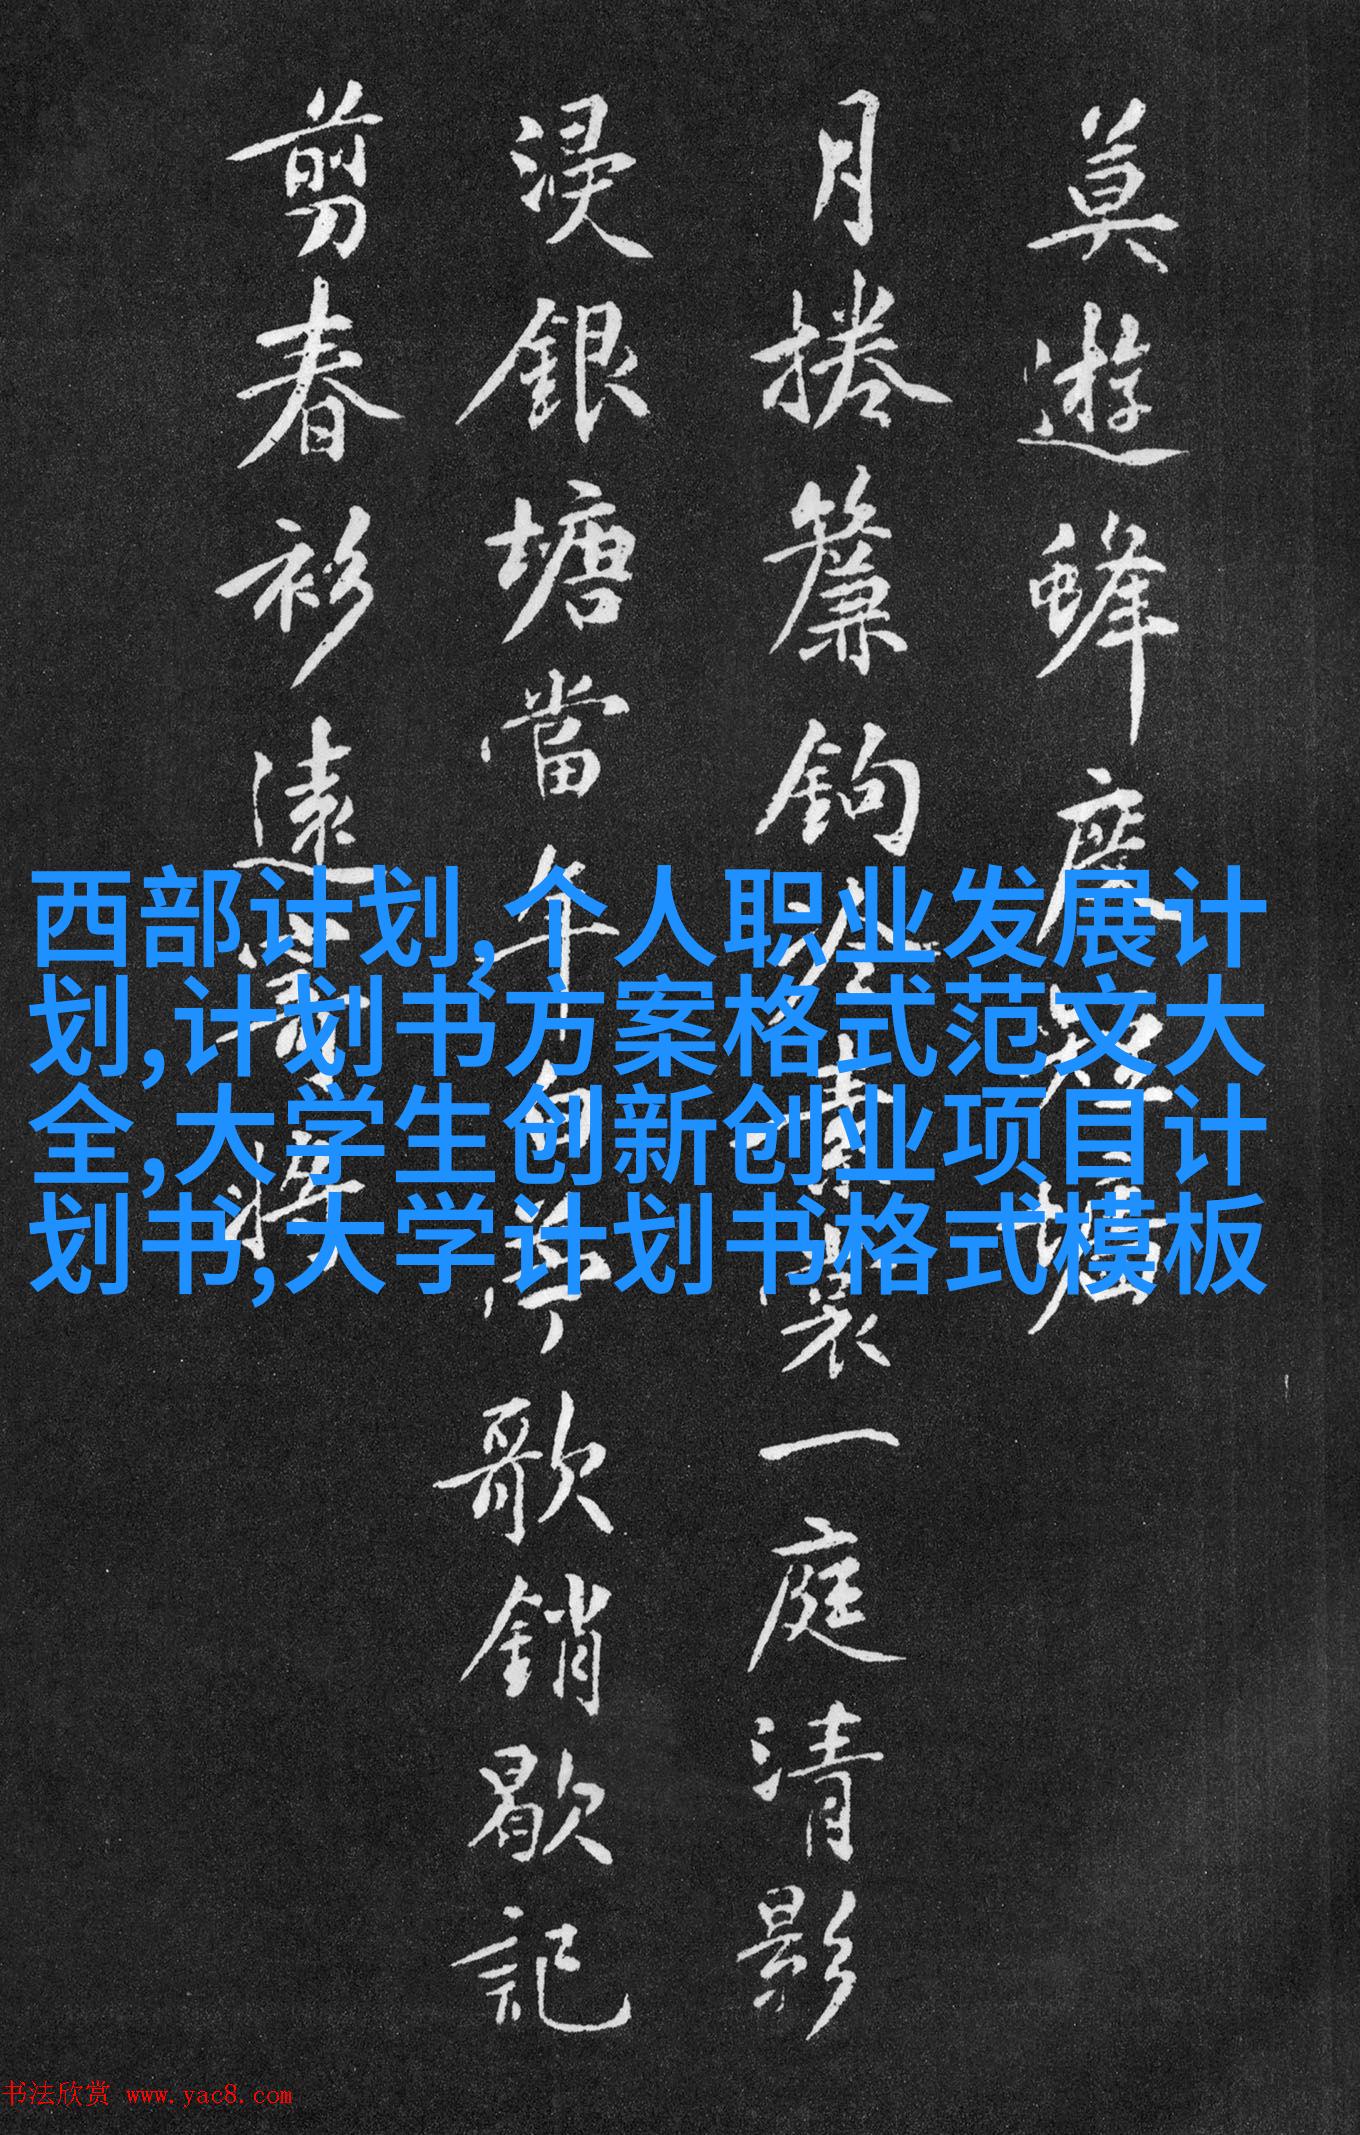 莫遊蜂度短墻
月捲簾鉤冷素裳一庭清影
浸銀塘當年自苧歌銷歇記
剪春衫遠寄將
西部计划,个人职业发展计
划,计划书方案格式范文大
全,大学生创新创业项目计
划书,大学计划书格式模板
书法欣赏 www.yac8.com